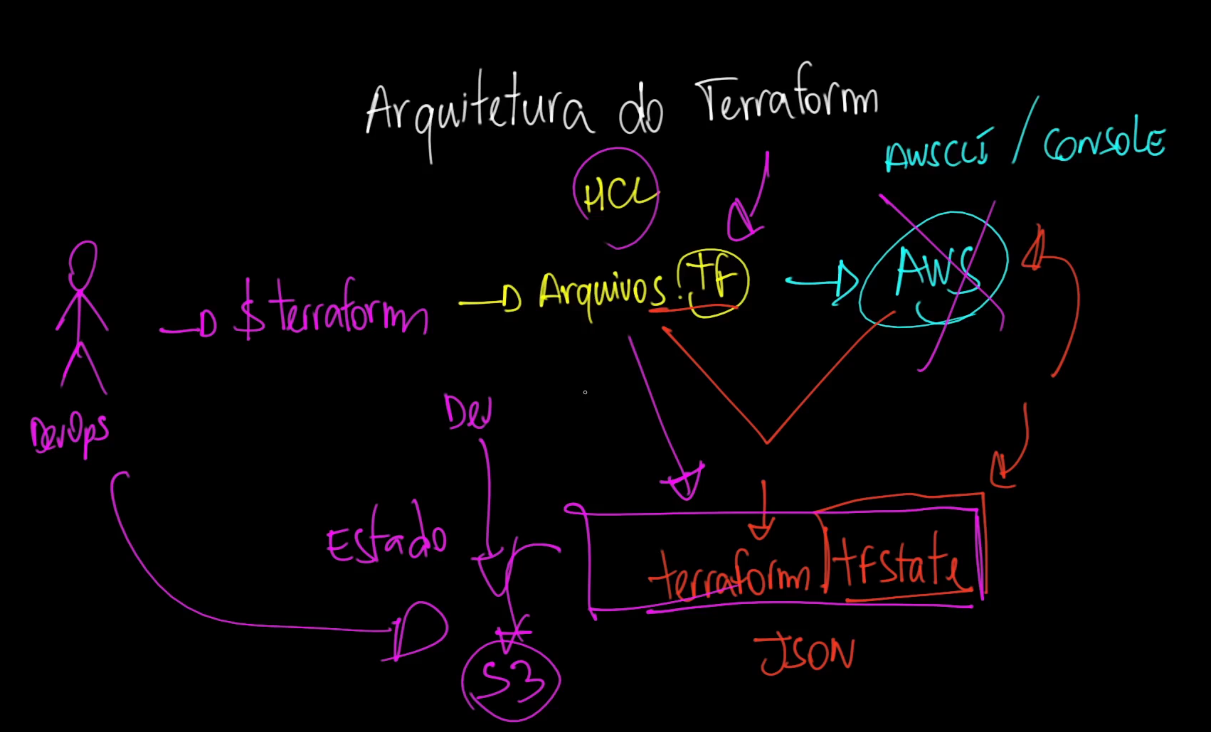 Arquitetura do Terraform
AWSCLI / CONSOLE
HCL
DevOps
$ terraform
Arquivos .tf
AWS
Dev
Estado
terraform
tfstate
JSON
S3